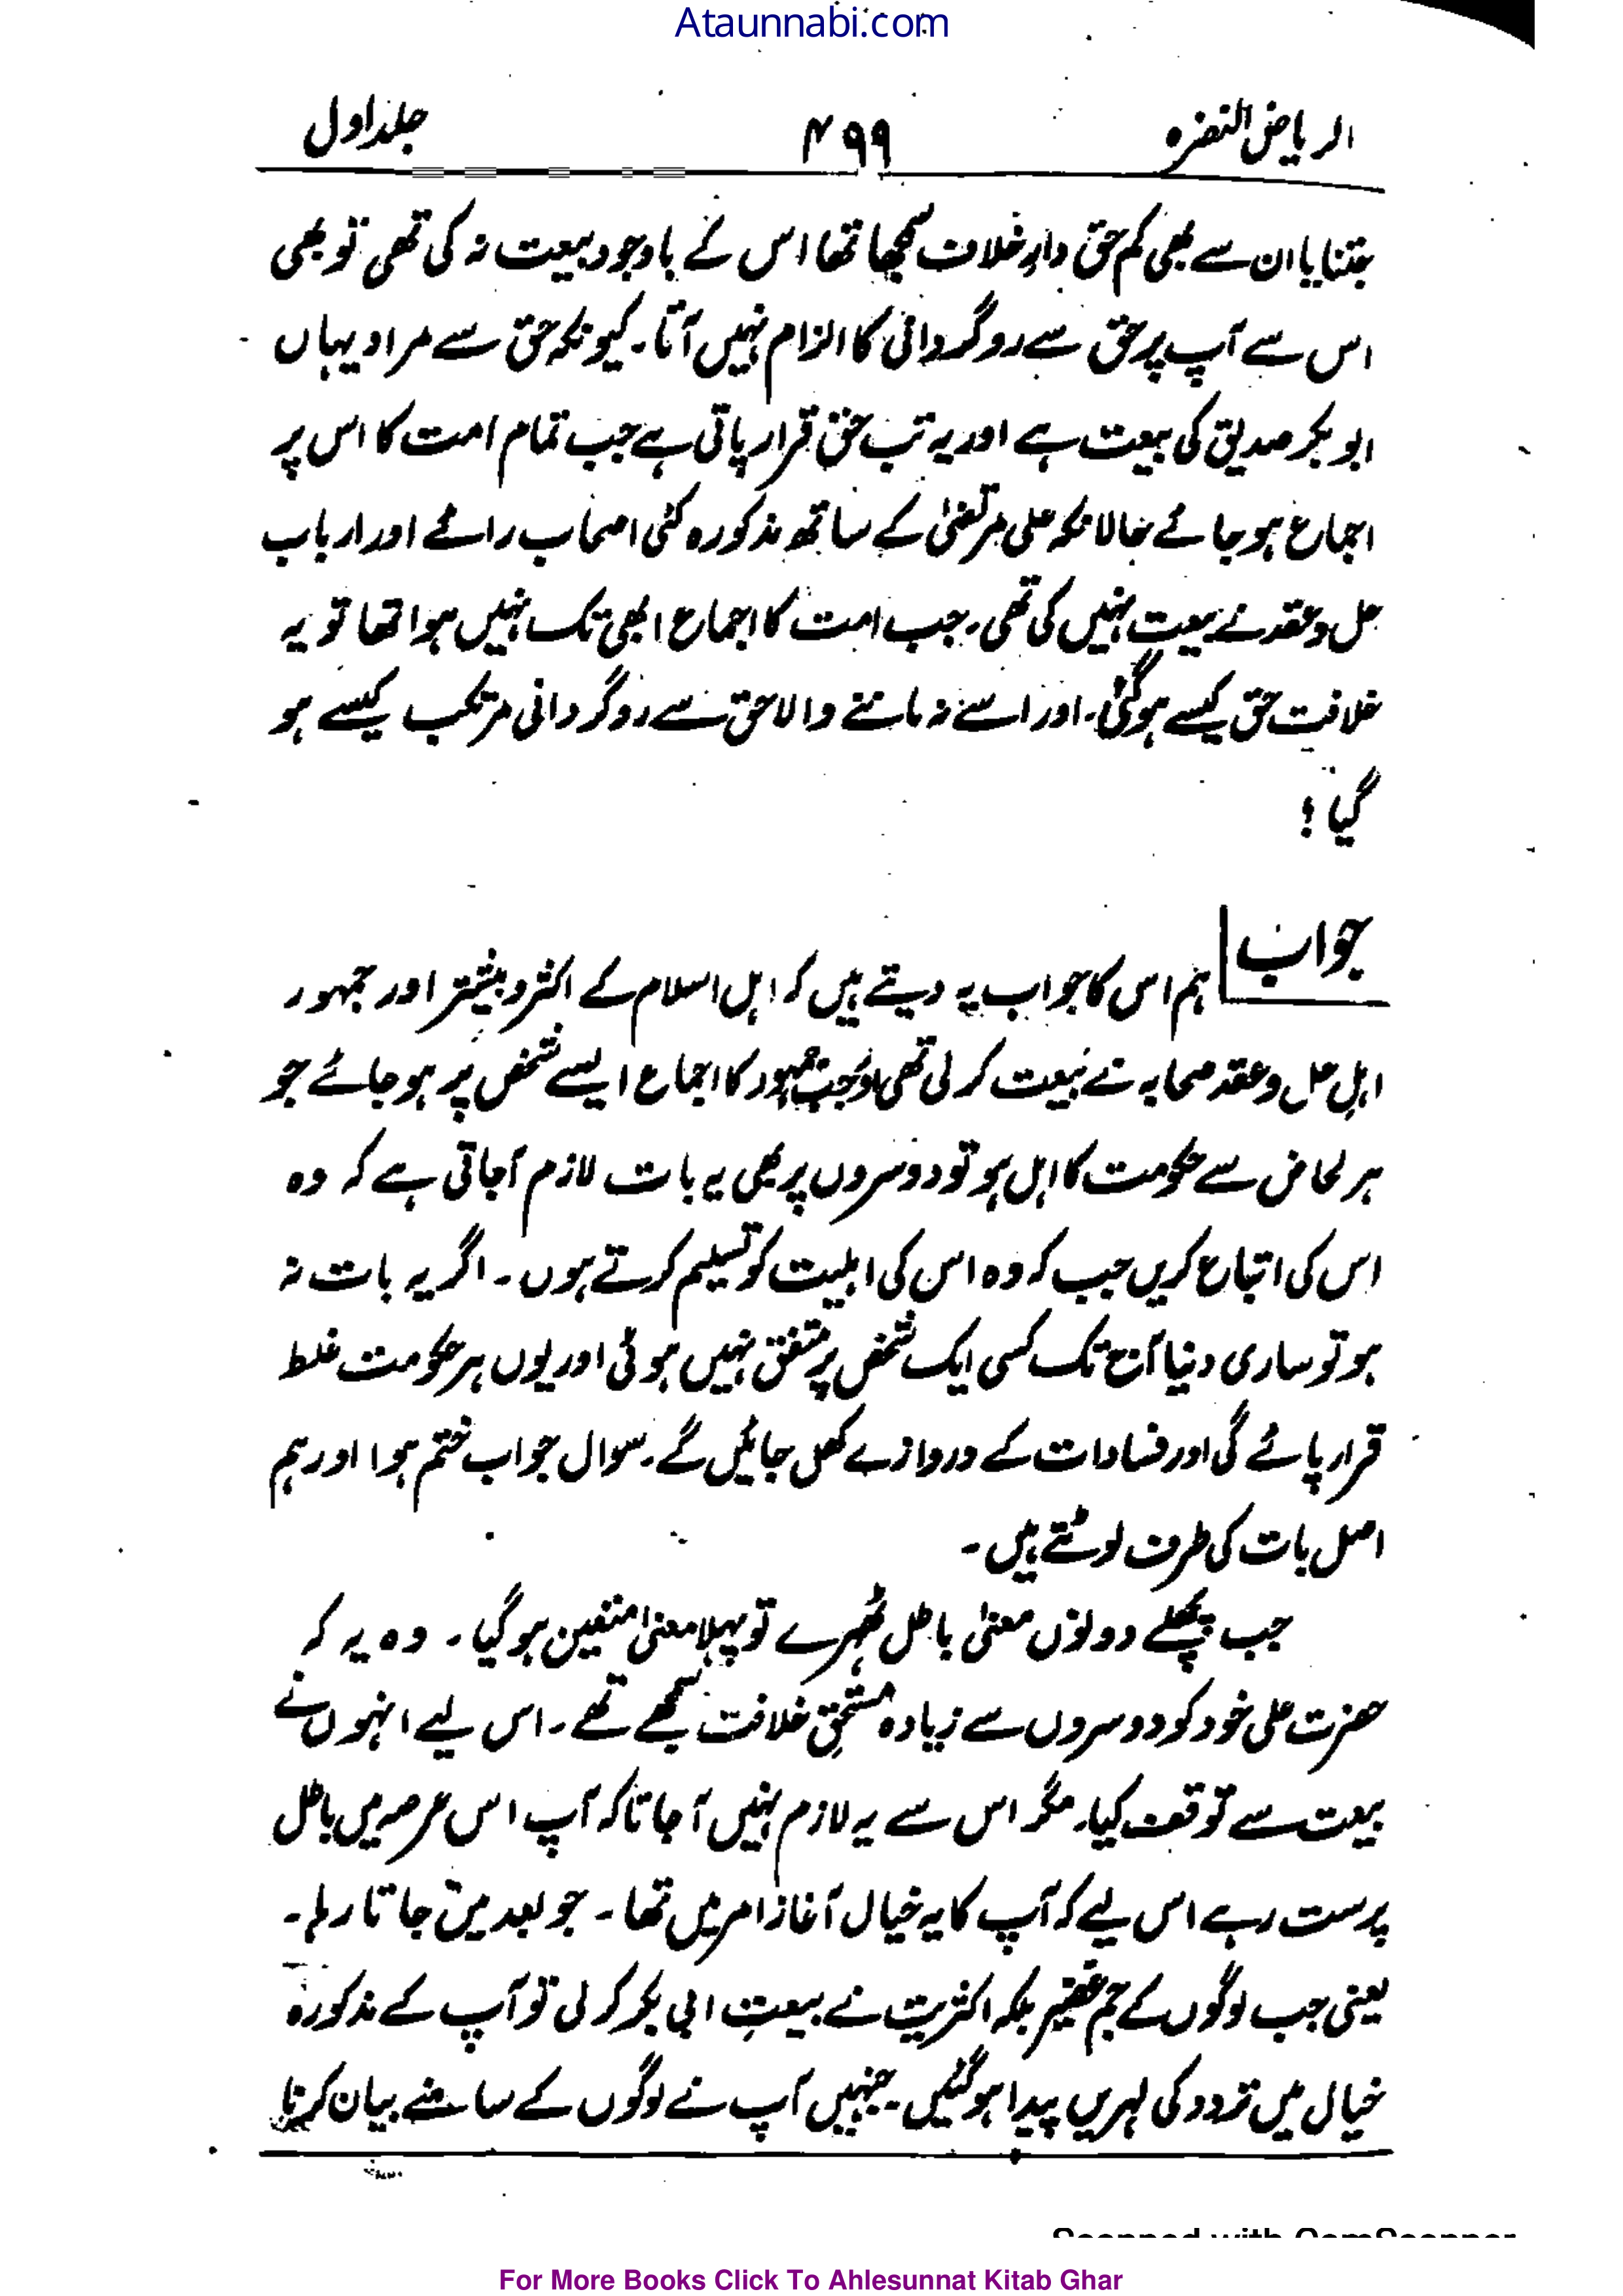 Ataunnabi.com
الریاض النضرہ ۴۹۹ جلد اول
جتنا یا ان سے بھی کم حق دارِ خلافت سمجھا تھا اس کے باوجود بیعت نہ کی تھی تو بھی
اس سے آپ پر حق سے روگردانی کا الزام نہیں آتا۔ کیونکہ حق سے مراد یہاں
ابو بکر صدیق کی بیعت ہے اور یہ تب حق قرار پاتی ہے جب تمام امت کا اس پر
اجماع ہو جائے حالانکہ علی مرتضیٰ کے ساتھ مذکورہ کئی اصحاب رائے اور ارباب
حل و عقد نے بیعت نہیں کی تھی۔ جب امت کا اجماع ابھی تک نہیں ہوا تھا تو یہ
خلافت حق کیسے ہو گئی۔ اور اسے نہ ماننے والا حق سے روگردانی مرتکب کیسے ہو
گیا ؟
جواب
ہم اس کا جواب یہ دیتے ہیں کہ اہل اسلام کے اکثر و بیشتر اور جمہور
اہلِ حل و عقد صحابہ نے بیعت کر لی تھی اور جب جمہور کا اجماع ایسے شخص پر ہو جائے جو
ہر لحاض سے حکومت کا اہل ہو تو دوسروں پر بھی یہ بات لازم آجاتی ہے کہ وہ
اس کی اتباع کریں جب کہ وہ اس کی اہلیت کو تسلیم کرتے ہوں۔ اگر یہ بات نہ
ہو تو ساری دنیا آج تک کسی ایک شخص پر متفق نہیں ہوئی اور یوں ہر حکومت غلط
قرار پائے گی اور فسادات کے دروازے کھل جائیں گے۔ سوال جواب ختم ہوا اور ہم
اصل بات کی طرف لوٹتے ہیں۔
جب پچھلے دونوں معنیٰ باطل ٹھہرے تو پہلا معنیٰ متعین ہو گیا۔ وہ یہ کہ
حضرت علی خود کو دوسروں سے زیادہ مستحقِ خلافت سمجھے تھے۔ اس لیے انہوں نے
بیعت سے توقف کیا۔ مگر اس سے یہ لازم نہیں آ جاتا کہ آپ اس عرصہ میں باطل
پرست رہے اس لیے کہ آپ کا یہ خیال آغاز امر میں تھا۔ جو بعد میں جاتا رہا۔
یعنی جب لوگوں کے جم غفیر بلکہ اکثریت نے بیعتِ ابی بکر کر لی تو آپ کے مذکورہ
خیال میں تردد کی لہریں پیدا ہو گئیں۔ جنہیں آپ نے لوگوں کے سامنے بیان کرنا
Scanned with CamScanner
For More Books Click To Ahlesunnat Kitab Ghar